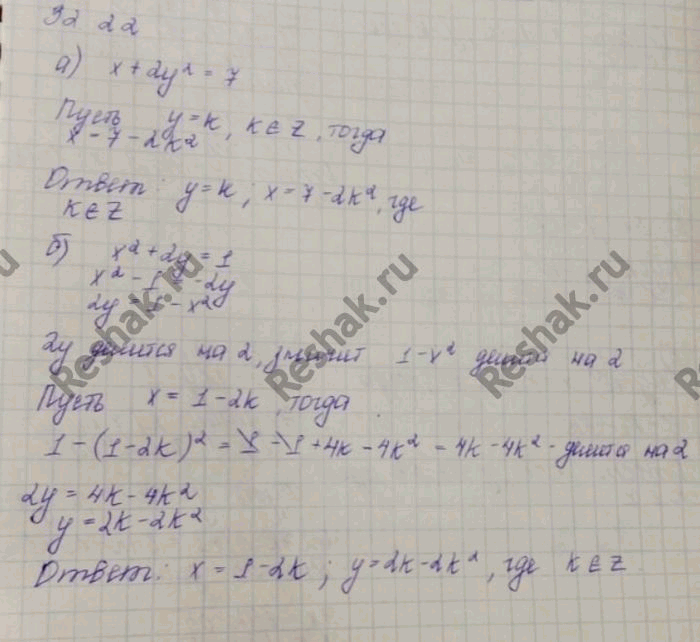 32 22
а) x + 2y² = 7
Пусть y = k, k ∈ Z, тогда
x - 7 - 2k²
Ответ: y = k; x = 7 - 2k², где
k ∈ Z
б) x² + 2y = 1
x² - 1 = -2y
2y = 1 - x²
2y делится на 2, значит 1 - x² делится на 2
Пусть x = 1 - 2k, тогда
1 - (1 - 2k)² = 1 - 1 + 4k - 4k² = 4k - 4k² - делится на 2
2y = 4k - 4k²
y = 2k - 2k²
Ответ: x = 1 - 2k; y = 2k - 2k², где k ∈ Z
Reshak.ru
Reshak.ru
Reshak.ru